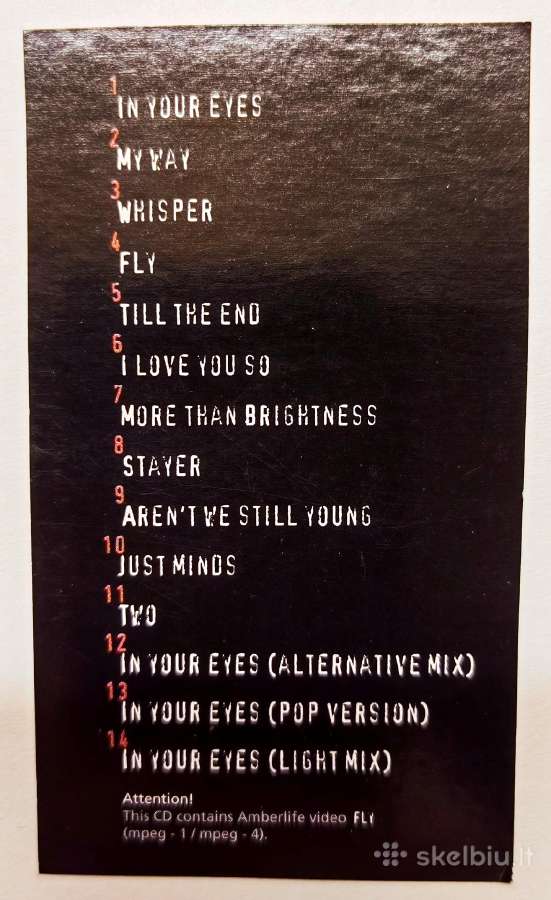 1
IN YOUR EYES
2
MY WAY
3
WHISPER
4
FLY
5
TILL THE END
6
I LOVE YOU SO
7
MORE THAN BRIGHTNESS
8
STAYER
9
AREN'T WE STILL YOUNG
10
JUST MINDS
11
TWO
12
IN YOUR EYES (ALTERNATIVE MIX)
13
IN YOUR EYES (POP VERSION)
14
IN YOUR EYES (LIGHT MIX)
Attention!
This CD contains Amberlife video FLY
(mpeg - 1 / mpeg - 4).
skelbiu.lt